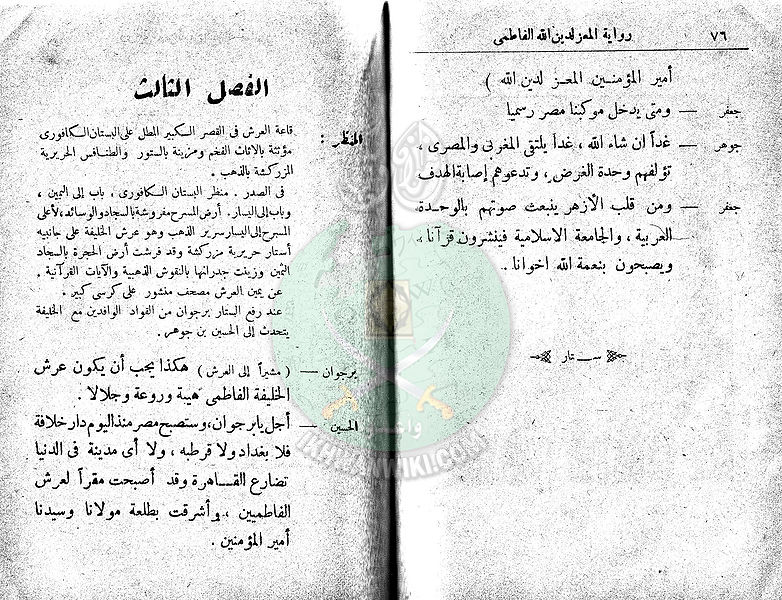 ٧٦ رواية المعز لدين الله الفاطمى
أمير المؤمنين المعز لدين الله )
جعفر — ومتى يدخل موكبنا مصر رسميا
جوهر — غداً ان شاء الله ، غداً يلتقى المغربى والمصرى ،
تؤلفهم وحدة الغرض ، وتدعوهم إصابة الهدف
جعفر — ومن قلب الأزهر ينبعث صوتهم بالوحدة
العربية ، والجامعة الاسلامية فينشرون قرآنا ،
ويصبحون بنعمة الله اخوانا ..
ستار
الفصل الثالث
المنظر : قاعة العرش فى القصر الكبير المطل على البستان الكافورى
مؤثثة بالاثاث الفخم ومزينة بالستور والطنافس الحريرية
المزركشة بالذهب .
فى الصدر . منظر البستان الكافورى . باب إلى اليمين ،
وباب إلى اليسار . أرض المسرح مفروشة بالسجاد والوسائد ، لأعلى
المسرح إلى اليسار سرير الذهب وهو عرش الخليفة على جانبيه
أستار حريرية مزركشة وقد فرشت أرض الحجرة بالسجاد
الثمين وزينت جدرانها بالنقوش الذهبية والآيات القرآنية .
عن يمين العرش مصحف منشور على كرسى كبير .
عند رفع الستار برجوان من القواد الوافدين مع الخليفة
يتحدث إلى الحسين بن جوهر .
برجوان — ( مشيراً إلى العرش ) هكذا يجب أن يكون عرش
الخليفة الفاطمى هيبة وروعة وجلالا .
الحسين — أجل يا برجوان ، وستصبح مصر منذ اليوم دار خلافة
فلا بغداد ولا قرطبه ، ولا أى مدينة فى الدنيا
تضارع القاهرة وقد أصبحت مقراً لعرش
الفاطميين ، وأشرقت بطلعة مولانا وسيدنا
أمير المؤمنين .
IKHWANWIKI.COM